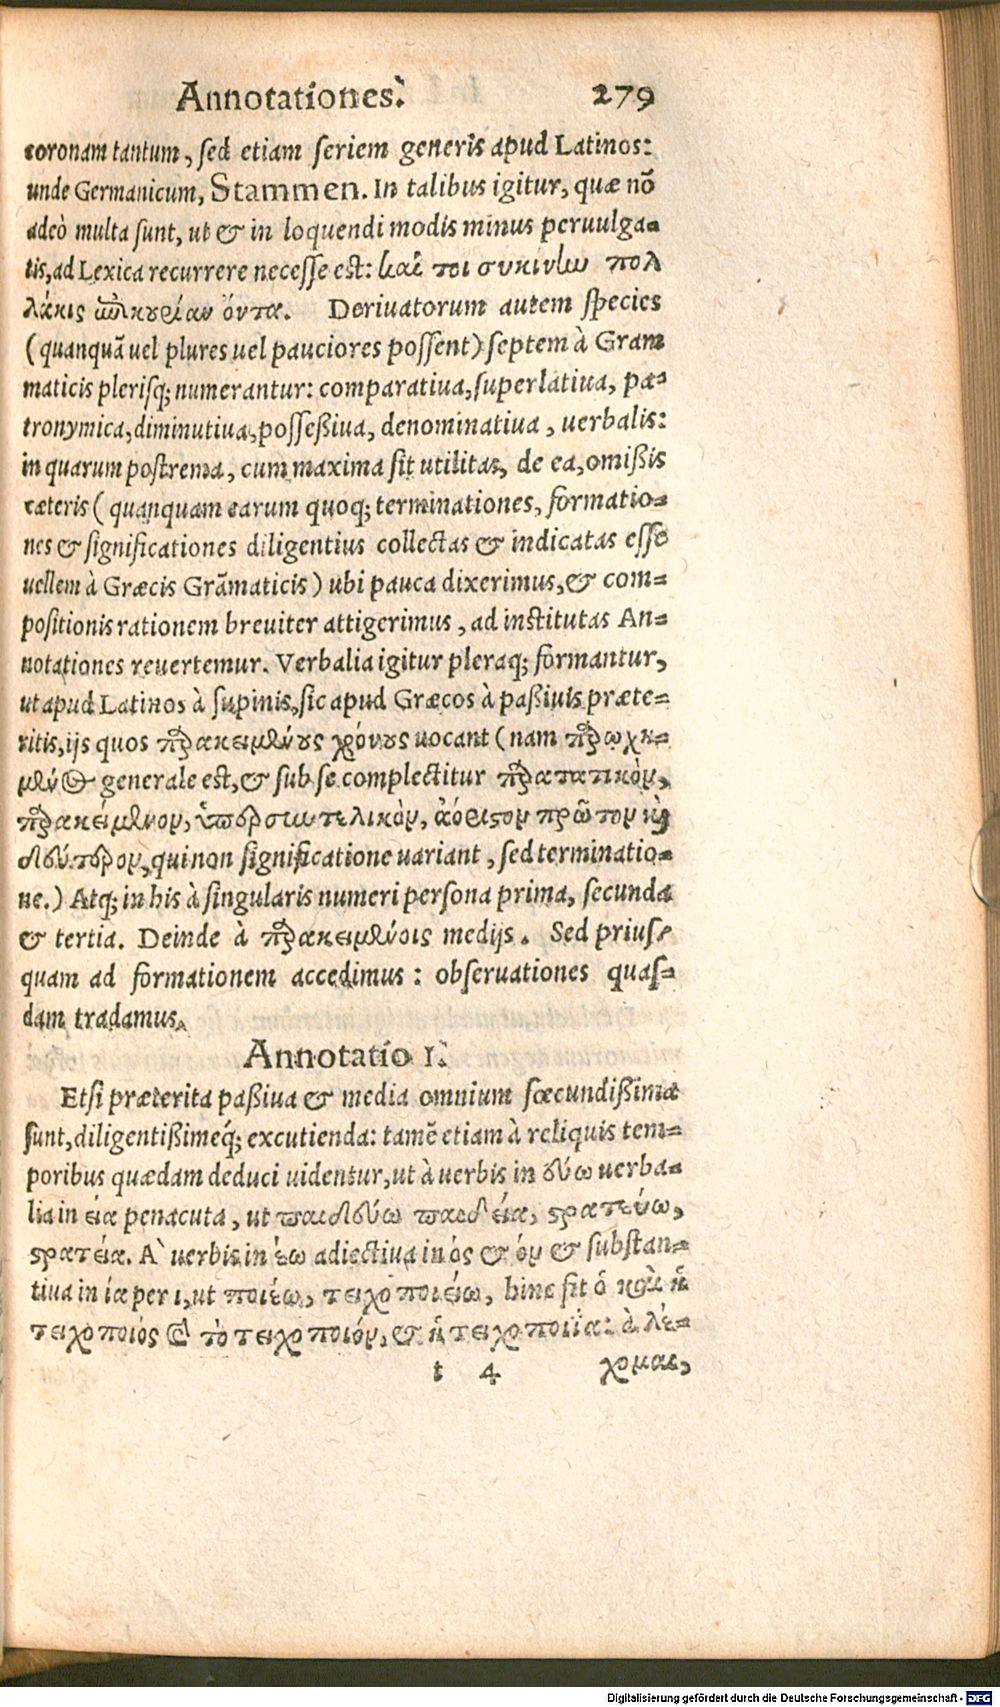 Annotationes. 279
coronam tantum, sed etiam seriem generis apud Latinos:
unde Germanicum, Stammen. In talibus igitur, quæ nō
adeò multa sunt, ut & in loquendi modis minus peruulga-
tis, ad Lexica recurrere necesse est: καί τοι συκίνων πολ
λάκις ἐπικουριῶν ὄντα. Deriuatorum autem species
(quanquā uel plures uel pauciores possent) septem à Gram
maticis plerisq; numerantur: comparatiua, superlatiua, pa-
tronymica, diminutiua, possessiua, denominatiua, uerbalis:
in quarum postrema, cum maxima sit utilitas, de ea, omissis
cæteris (quanquam earum quoq; terminationes, formatio-
nes & significationes diligentius collectas & indicatas esse
uellem à Græcis Grāmaticis) ubi pauca dixerimus, & com-
positionis rationem breuiter attigerimus, ad institutas An-
notationes reuertemur. Verbalia igitur pleraq; formantur,
ut apud Latinos à supinis, sic apud Græcos à passiuis præte-
ritis, ijs quos παρακειμένους χρόνους uocant (nam παρῳχη-
μένος generale est, & sub se complectitur παρατατικὸν,
παρακείμενον, ὑπερσυντελικὸν, ἀόριστον πρῶτον καὶ
δεύτερον, qui non significatione uariant, sed terminatio-
ne.) Atq; in his à singularis numeri persona prima, secunda
& tertia. Deinde à παρακειμένοις medijs. Sed prius-
quam ad formationem accedimus: obseruationes quas-
dam tradamus.
Annotatio 1.
Etsi præterita passiua & media omnium fœcundissima
sunt, diligentissimeq́; excutienda: tamē etiam à reliquis tem-
poribus quædam deduci uidentur, ut à uerbis in εύω uerba-
lia in εία penacuta, ut παιδεύω παιδεία, στρατεύω,
στρατεία. A` uerbis in έω adiectiua in ὸς & όν & substan-
tiua in ία per ι, ut ποιέω, τειχοποιέω, hinc fit ὁ καὶ ἡ
τειχοποιός & τὸ τειχοποιόν, & ἡ τειχοποιΐα: à λέ-
t 4 χομαι,